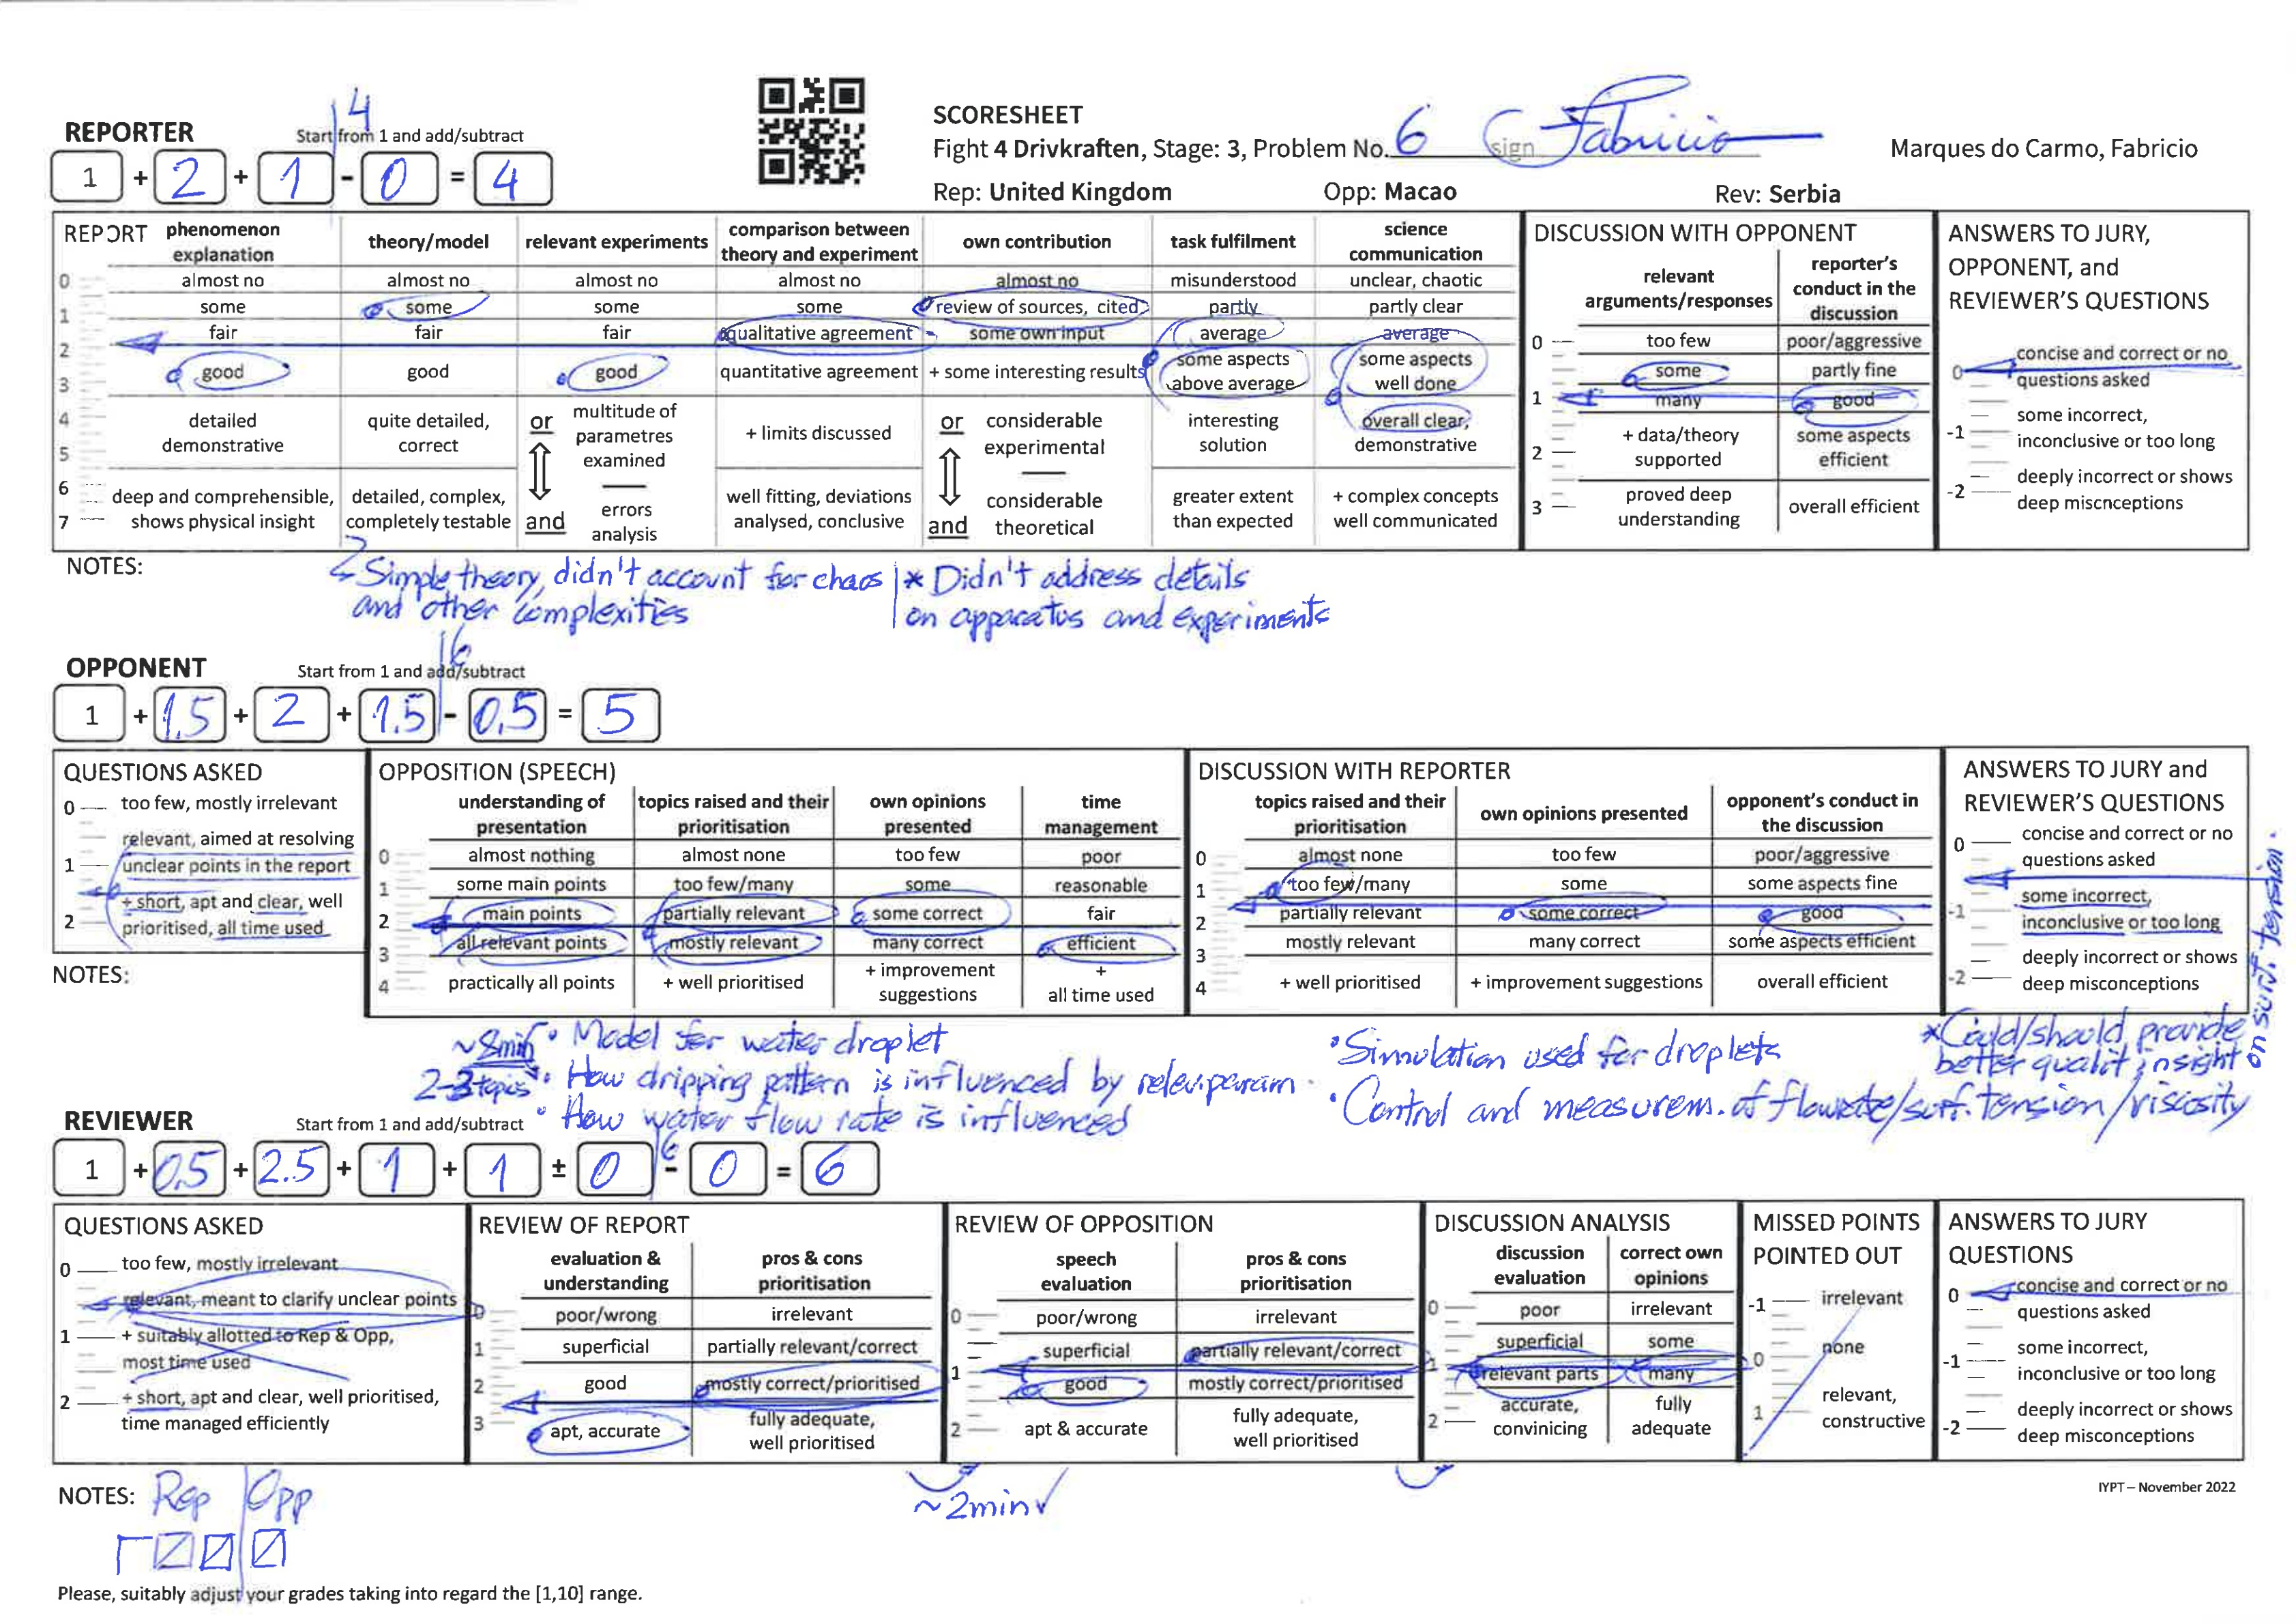 SCORESHEET
Fight 4 Drivkraften, Stage: 3, Problem No. 6 sign Fabricio
Marques do Carmo, Fabricio
Rep: United Kingdom Opp: Macao Rev: Serbia
REPORTER
4
Start from 1 and add/subtract
1 + 2 + 1 - 0 = 4
REPORT
phenomenon explanation
theory/model
relevant experiments
comparison between theory and experiment
own contribution
task fulfilment
science communication
0 almost no almost no almost no almost no almost no misunderstood unclear, chaotic
1 some some some some review of sources, cited partly partly clear
2 fair fair fair qualitative agreement some own input average average
3 good good good quantitative agreement + some interesting results some aspects above average some aspects well done
4 5 detailed demonstrative quite detailed, correct or multitude of parametres examined + limits discussed or considerable experimental interesting solution overall clear, demonstrative
6 7 deep and comprehensible, shows physical insight detailed, complex, completely testable and errors analysis well fitting, deviations analysed, conclusive and considerable theoretical greater extent than expected + complex concepts well communicated
DISCUSSION WITH OPPONENT
relevant arguments/responses
reporter's conduct in the discussion
0 too few poor/aggressive
some partly fine
1 many good
2 + data/theory supported some aspects efficient
3 proved deep understanding overall efficient
ANSWERS TO JURY, OPPONENT, and REVIEWER'S QUESTIONS
0 concise and correct or no questions asked
-1 some incorrect, inconclusive or too long
-2 deeply incorrect or shows deep miscnceptions
NOTES:
Simple theory, didn't account for chaos
and other complexities
* Didn't address details
on apparatus and experiments
OPPONENT
6
Start from 1 and add/subtract
1 + 1,5 + 2 + 1.5 - 0,5 = 5
QUESTIONS ASKED
0 too few, mostly irrelevant
relevant, aimed at resolving
1 unclear points in the report
+ short, apt and clear, well
2 prioritised, all time used
NOTES:
OPPOSITION (SPEECH)
understanding of presentation
topics raised and their prioritisation
own opinions presented
time management
0 almost nothing almost none too few poor
1 some main points too few/many some reasonable
2 main points partially relevant some correct fair
3 all relevant points mostly relevant many correct efficient
4 practically all points + well prioritised + improvement suggestions + all time used
DISCUSSION WITH REPORTER
topics raised and their prioritisation
own opinions presented
opponent's conduct in the discussion
0 almost none too few poor/aggressive
1 too few/many some some aspects fine
2 partially relevant some correct good
3 mostly relevant many correct some aspects efficient
4 + well prioritised + improvement suggestions overall efficient
ANSWERS TO JURY and REVIEWER'S QUESTIONS
0 concise and correct or no questions asked
-1 some incorrect, inconclusive or too long
-2 deeply incorrect or shows deep misconceptions
~8min • Model for water droplet
2-3 topics • How dripping pattern is influenced by relev. param.
• How water flow rate is influenced
• Simulation used for droplets
• Control and measurem. of flowrate/surf. tension/viscosity
* Could/should provide
better qualit. insight on surf. tension.
REVIEWER
6
Start from 1 and add/subtract
1 + 0,5 + 2.5 + 1 + 1 ± 0 - 0 = 6
QUESTIONS ASKED
0 too few, mostly irrelevant
relevant, meant to clarify unclear points
1 + suitably allotted to Rep & Opp,
most time used
2 + short, apt and clear, well prioritised,
time managed efficiently
REVIEW OF REPORT
evaluation & understanding
pros & cons prioritisation
0 poor/wrong irrelevant
1 superficial partially relevant/correct
2 good mostly correct/prioritised
3 apt, accurate fully adequate, well prioritised
REVIEW OF OPPOSITION
speech evaluation
pros & cons prioritisation
0 poor/wrong irrelevant
superficial partially relevant/correct
1 good mostly correct/prioritised
2 apt & accurate fully adequate, well prioritised
DISCUSSION ANALYSIS
discussion evaluation
correct own opinions
0 poor irrelevant
superficial some
1 relevant parts many
2 accurate, convinicing fully adequate
MISSED POINTS POINTED OUT
-1 irrelevant
0 none
1 relevant, constructive
ANSWERS TO JURY QUESTIONS
0 concise and correct or no questions asked
-1 some incorrect, inconclusive or too long
-2 deeply incorrect or shows deep misconceptions
NOTES: Rep Opp
~2min
IYPT – November 2022
Please, suitably adjust your grades taking into regard the [1,10] range.